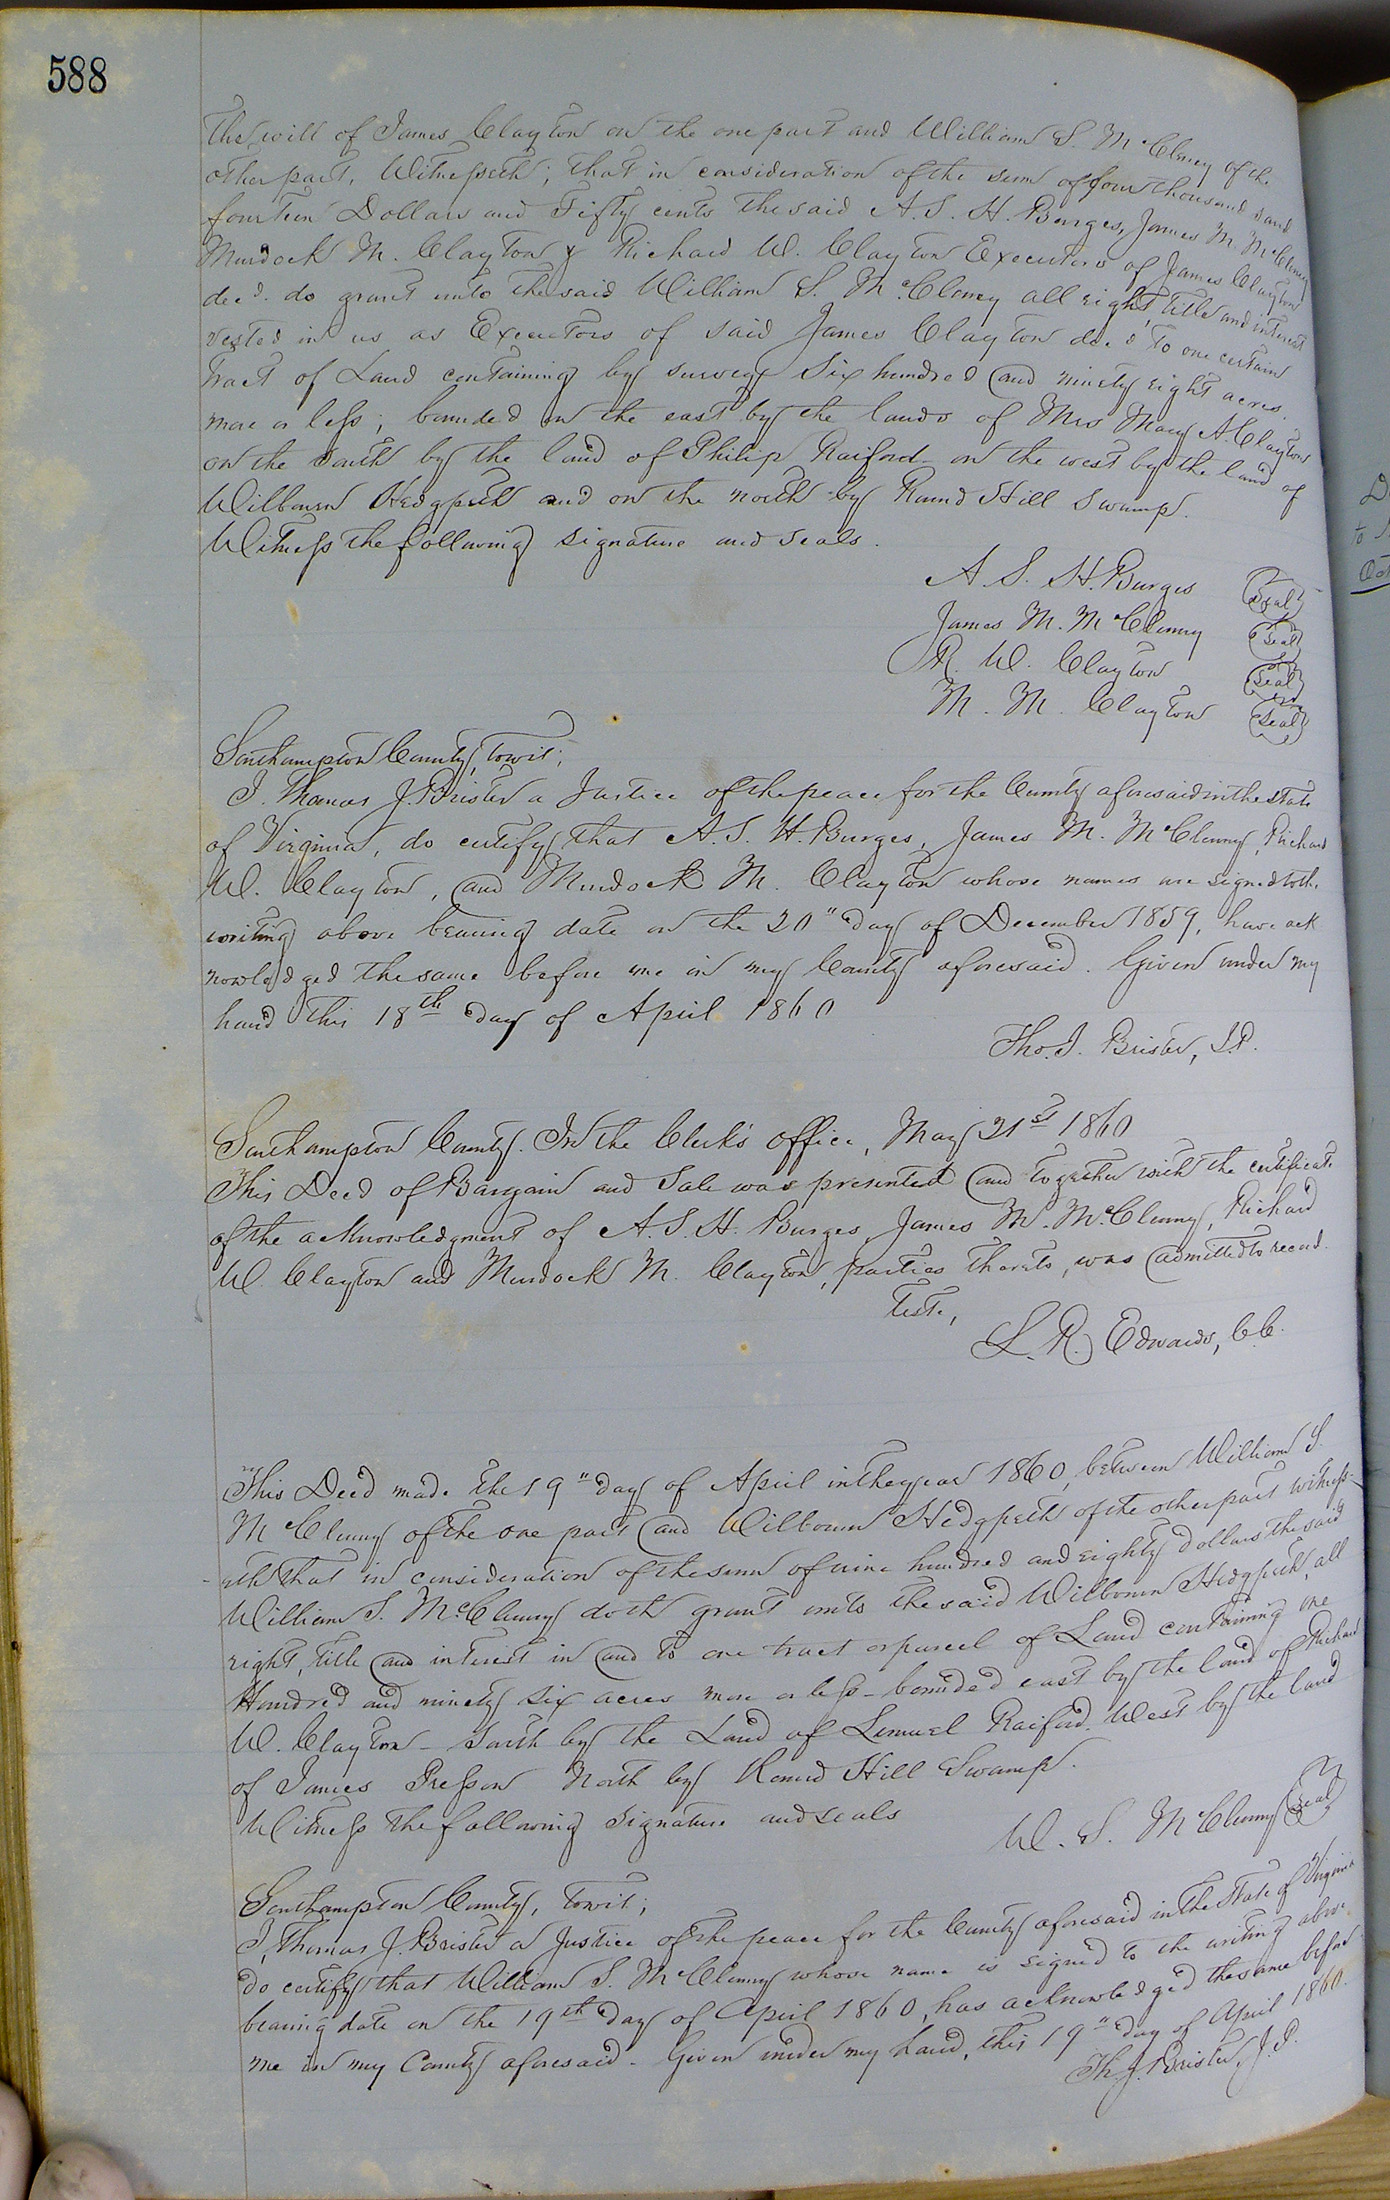 588
the will of James Clayton on the one part and William S. McClenny of the
other part, Witnesseth; that in consideration of the sum of four thousand and
fourteen Dollars and Fifty cents the said A. S. H. Burges, James M. McClenny
Murdock M. Clayton & Richard W. Clayton Executors of James Clayton
decd. do grant unto the said William S. McClenny all right title and interest
vested in us as Executors of said James Clayton dec'd to one certain
tract of Land containing by survey Six hundred and ninety eight acres
more or less; bounded on the east by the lands of Mrs Mary A. Clayton
on the South by the land of Philip Raiford on the west by the land of
Wilbourn Hedgpeth and on the north by Round Hill Swamp.
Witness the following signature and seals.
A. S. H. Burges Seal
James M. McClenny Seal
R. W. Clayton Seal
M. M. Clayton Seal
Southampton County, towit;
I. Thomas J. Brister a Justice of the peace for the County aforesaid in the State
of Virginia, do certify that A. S. H. Burges, James M. McClenny, Richard
W. Clayton, and Murdock M. Clayton whose names are signed to the
writing above bearing date on the 20" day of December 1859, have ack
nowledged the same before me in my County aforesaid. Given under my
hand this 18th day of April 1860
Tho. J. Brister, J.P.
Southampton County. In the Clerk's office, May 21st 1860
This Deed of Bargain and Sale was presented and together with the certificate
of the acknowledgment of A. S. H. Burges, James M. McClenny, Richard
W. Clayton and Murdock M. Clayton, parties thereto, was admitted to record.
Teste,
L. R. Edwards, C.C.
This Deed made the 19" day of April in the year 1860, between William S.
McClenny of the one part and Wilbourn Hedgpeth of the other part witness-
-eth that in consideration of the sum of nine hundred and eighty dollars the said
William S. McClenny doth grant unto the said Wilbourn Hedgpeth, all
right, title and interest in and to one tract or parcel of Land containing one
Hundred and ninety six acres more or less - bounded east by the land of Richard
W. Clayton - South by the Land of Lemuel Raiford. West by the land
of James Presson North by Round Hill Swamp.
Witness the following signature and seals
W. S. McClenny Seal
Southampton County, towit;
I, Thomas J. Brister a Justice of the peace for the County aforesaid in the State of Virginia
do certify that William S. McClenny whose name is signed to the writing above
bearing date on the 19th day of April 1860, has acknowledged the same before
me in my County aforesaid - Given under my hand, this 19" day of April 1860.
Th. J. Brister, J.P.